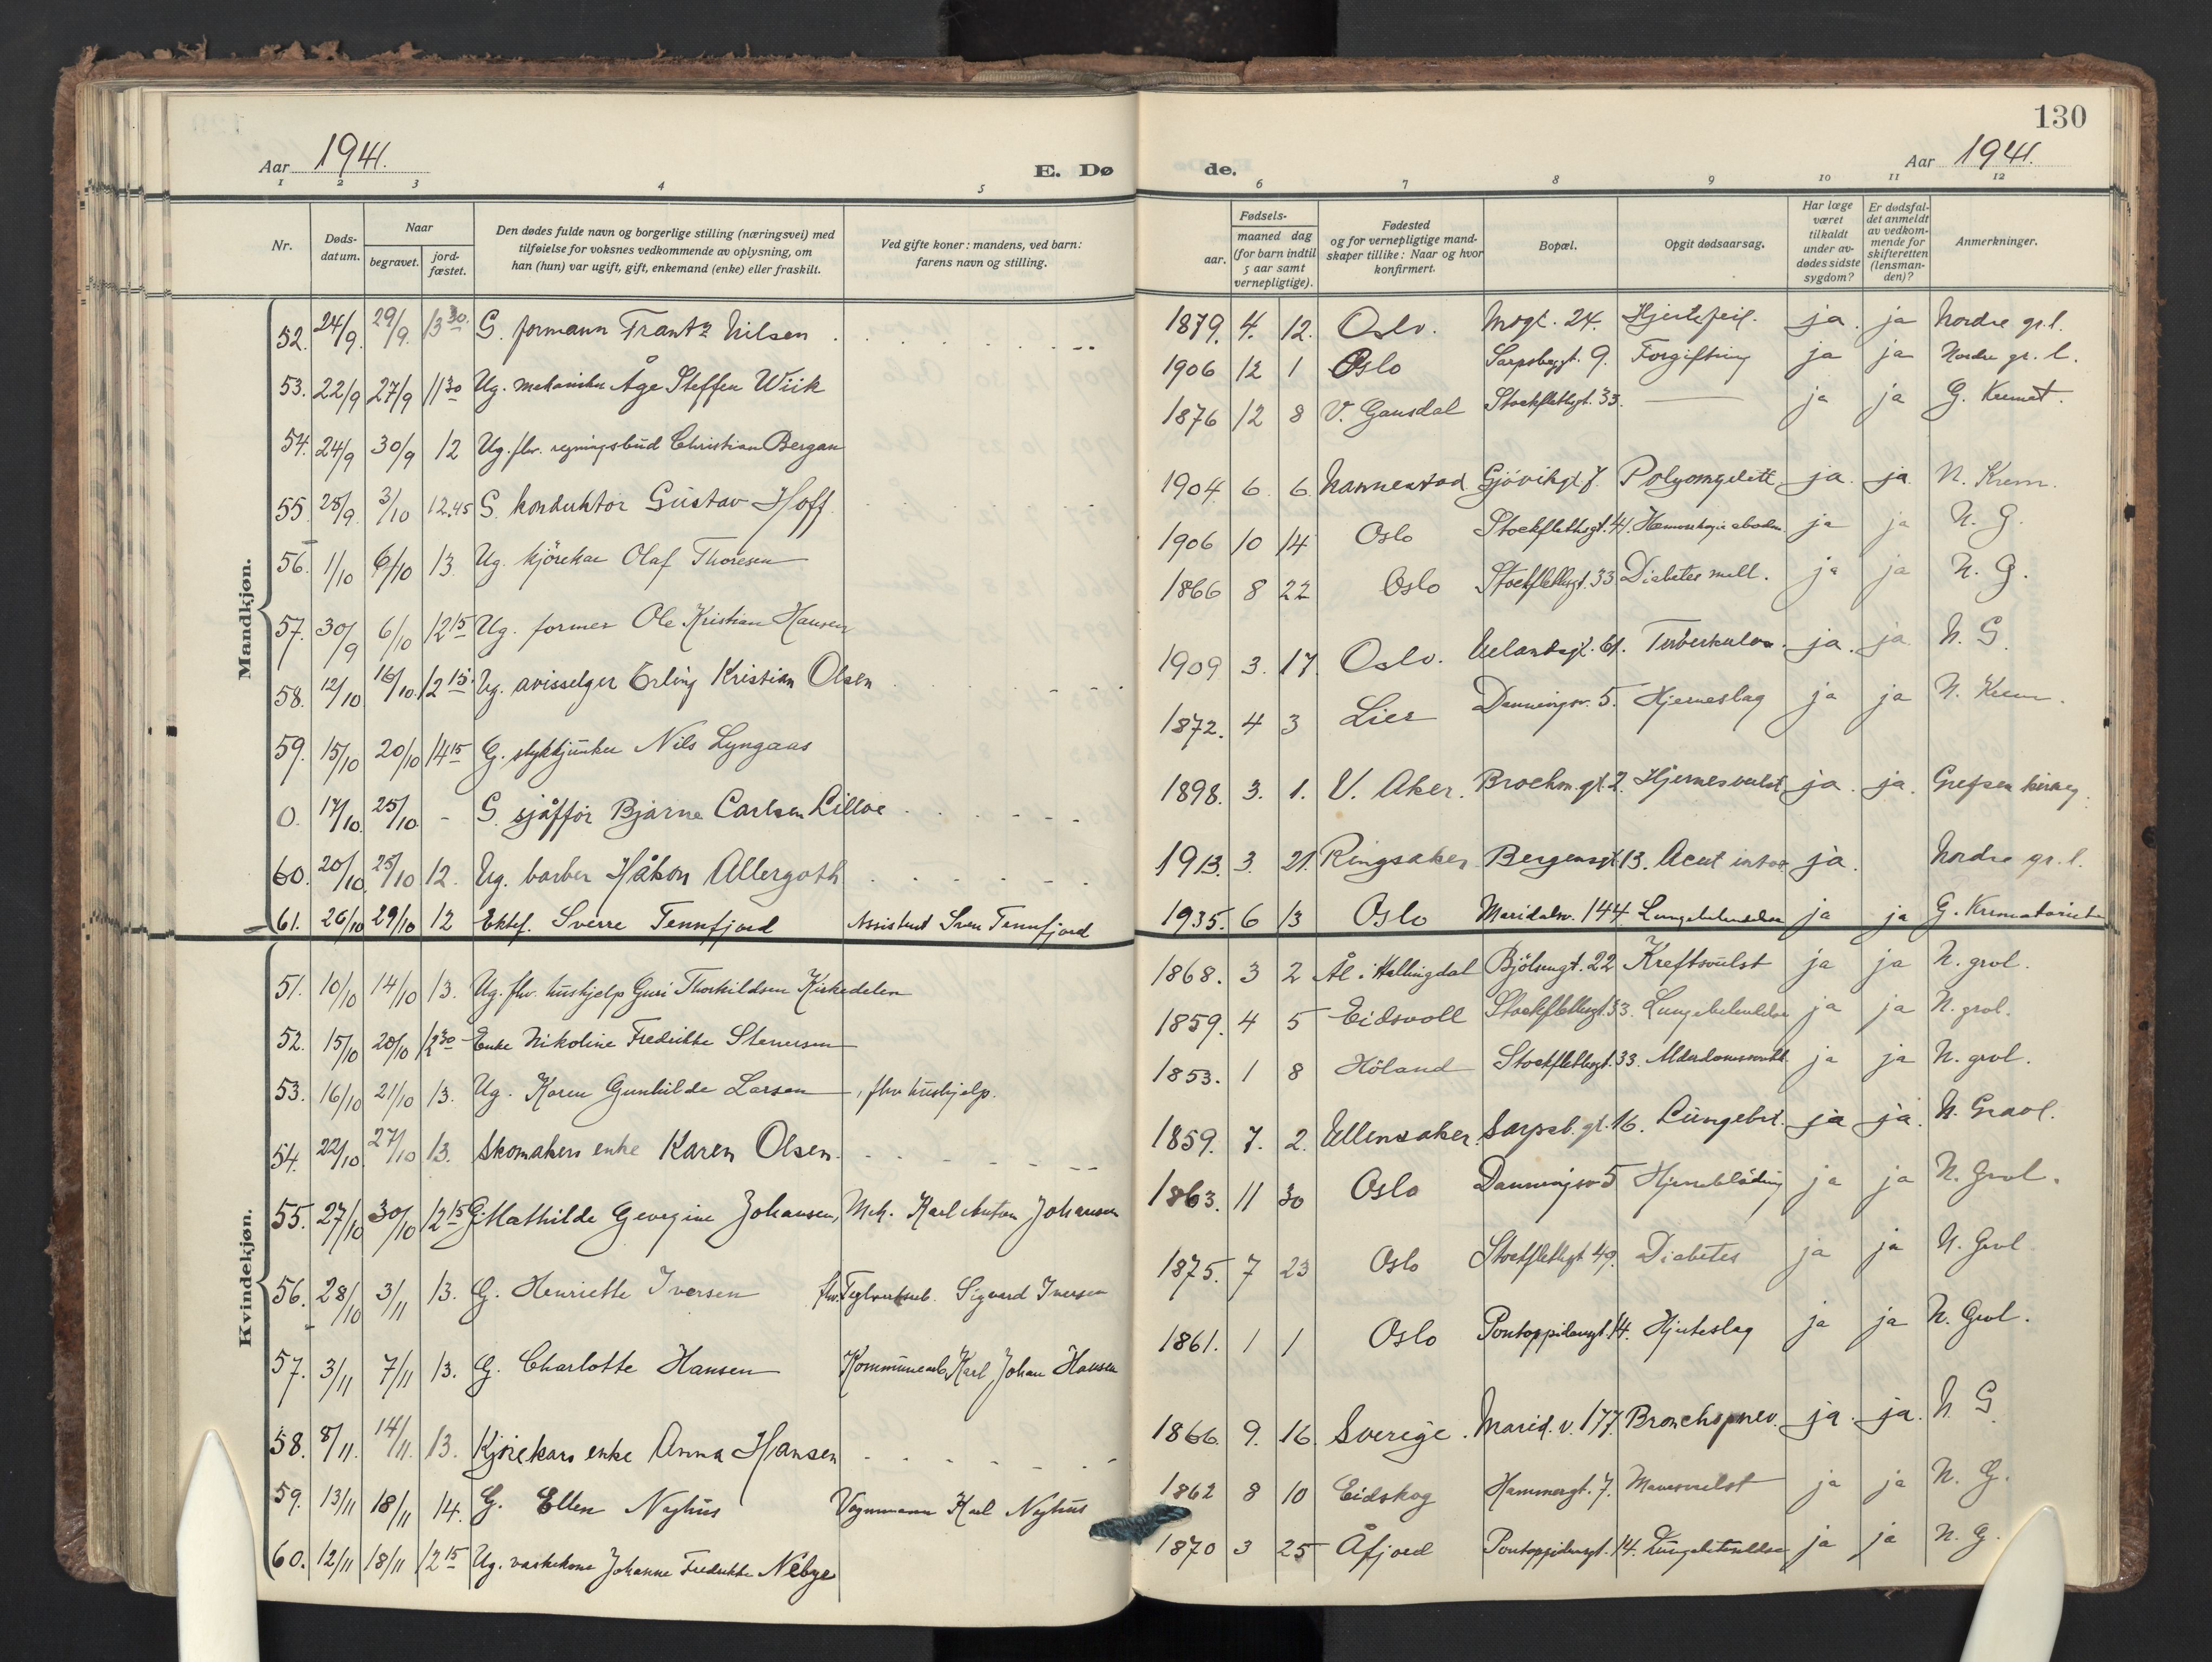 130
Aar 1941.
E. Dø de.
Aar 1941.
1 2 3 4 5 6 7 8 9 10 11 12
Nr. Døds-datum. Naar begravet. jord-fæstet. Den dødes fulde navn og borgerlige stilling (næringsvei) med tilføielse for voksnes vedkommende av oplysning, om han (hun) var ugift, gift, enkemand (enke) eller fraskilt. Ved gifte koner: mandens, ved barn: farens navn og stilling. Fødsels- aar. maaned dag (for barn indtil 5 aar samt vernepligtige). Fødested og for vernepligtige mand-skaper tillike: Naar og hvor konfirmert. Bopæl. Opgit dødsaarsag. Har læge været tilkaldt under av-dødes sidste sygdom? Er dødsfal-det anmeldt av vedkom-mende for skifteretten (lensman-den)? Anmerkninger.
Mandkjøn.
52. 24/9 29/9 13 30 G. formann Frantz Nilsen 1879. 4. 12. Oslo. 24. Hjertefeil. ja. ja Nordre gr.l.
53. 22/9 27/9 11 30 Ug. mekaniker Åge Steffen Wiik 1906 12 1 Oslo Sarpsbggt. 9. Forgiftning ja ja Nordre gr. l.
54. 24/9 30/9 12 Ug. fhv. regningsbud Christian Bergan 1876 12 8 V. Gausdal Stockflethsgt. 33. — ja ja G. Kremat.
55. 28/9 3/10 12.45 G. konduktør Gustav Hoff 1904 6. 6. Nannestad Gjövikgt 7. Polyomyelitt ja. ja N. Krem.
56. 1/10 6/10 13 Ug. kjörekar Olaf Thoresen 1906 10 14 Oslo Stockflethsgt. 41. ja ja N. G.
57. 30/9 6/10 12 15 Ug. former Ole Kristian Hansen 1866 8 22 Oslo Stockflethsgt. 33 Diabetes mell. ja ja N. G.
58. 12/10 16/10 12 15 Ug. avisselger Erling Kristian Olsen 1909 3. 17. Oslo. Uelandsgt. 61. Tuberkulos. ja. ja N. G.
59. 15/10 20/10 14 15 G. stykkjunker Nils Lyngaas 1872. 4 3 Lier Danningsv. 5. Hjerneslag ja ja N. Krem.
0. 17/10 25/10 - G. sjåffør Bjarne Carlsen Lilloe 1898. 3. 1. V. Aker. Brochm. gt. 2. Hjernesvulst ja. ja. Grefsen kirkeg.
60. 20/10 25/10 12. Ug. barber Håkon Allergoth 1913. 3. 21. Ringsaker Bergensgt 13. Acut intox ja. Nordre gr. l.
61. 26/10 29/10 12 Ektef. Sverre Tennfjord Assistent Sven Tennfjord 1935. 6 13 Oslo Maridalsv. 144 Lungebetendelse ja ja G. Krematoriet
Kvindekjøn.
51. 10/10 14/10 13. Ug. fhv. hushjelp Guri Thorkildsen Kirkedelen 1868. 3 2 Ål i Hallingdal Bjölsengt. 22 Kreftsvulst ja ja N. grvl.
52. 15/10 20/10 12 30 Enke Nikoline Fredrikke Stenersen 1859. 4 5 Eidsvoll Stockflethsgt. 33. Lungebetendelse ja ja N. grvl.
53. 16/10 21/10 13. Ug. Karen Gunhilde Larsen , fhv hushjelp. 1853. 1 8 Höland Stockflethsgt. 33. ja ja N. grvl.
54. 22/10 27/10 13. Skomakers enke Karen Olsen 1859. 7. 2. Ullensaker. Sarpsb. gt. 16. Lungebet. ja ja. N. Gravl.
55. 27/10 30/10 12 15 G. Mathilde Georgine Johansen, Mek. Karl Anton Johansen 1863. 11 30 Oslo Danningsv 5 Hjerneblödning ja ja N. Grvl.
56. 28/10 3/11 13. G. Henriette Iversen fhv. Teglverksarb. Sigvard Iversen 1875. 7 23 Oslo Stockflethsgt 49. Diabetes ja ja N. Grvl
57. 3/11 7/11 13. G. Charlotte Hansen Kommunearb. Karl Johan Hansen 1861. 1 1 Oslo Pontoppidansgt. 14. Hjerteslag ja ja N. Grvl.
58. 8/11. 14/11. 13. Kjörekars enke Anna Hansen 1866. 9. 16. Sverige. Marid. v. 177. Bronchopnev. ja. ja. N G.
59. 13/11 18/11 14. G. Ellen Nyhus Vognmann Karl Nyhus 1862 8 10 Eidskog Hammergt. 7. Mavesvulst ja ja N. G.
60. 12/11 18/11 12 15 Ug. vaskekone Johanne Fredrikke Nebye 1870 3 25 Åfjord Pontoppidansgt. 14. Lungebetendelse ja ja N. G.